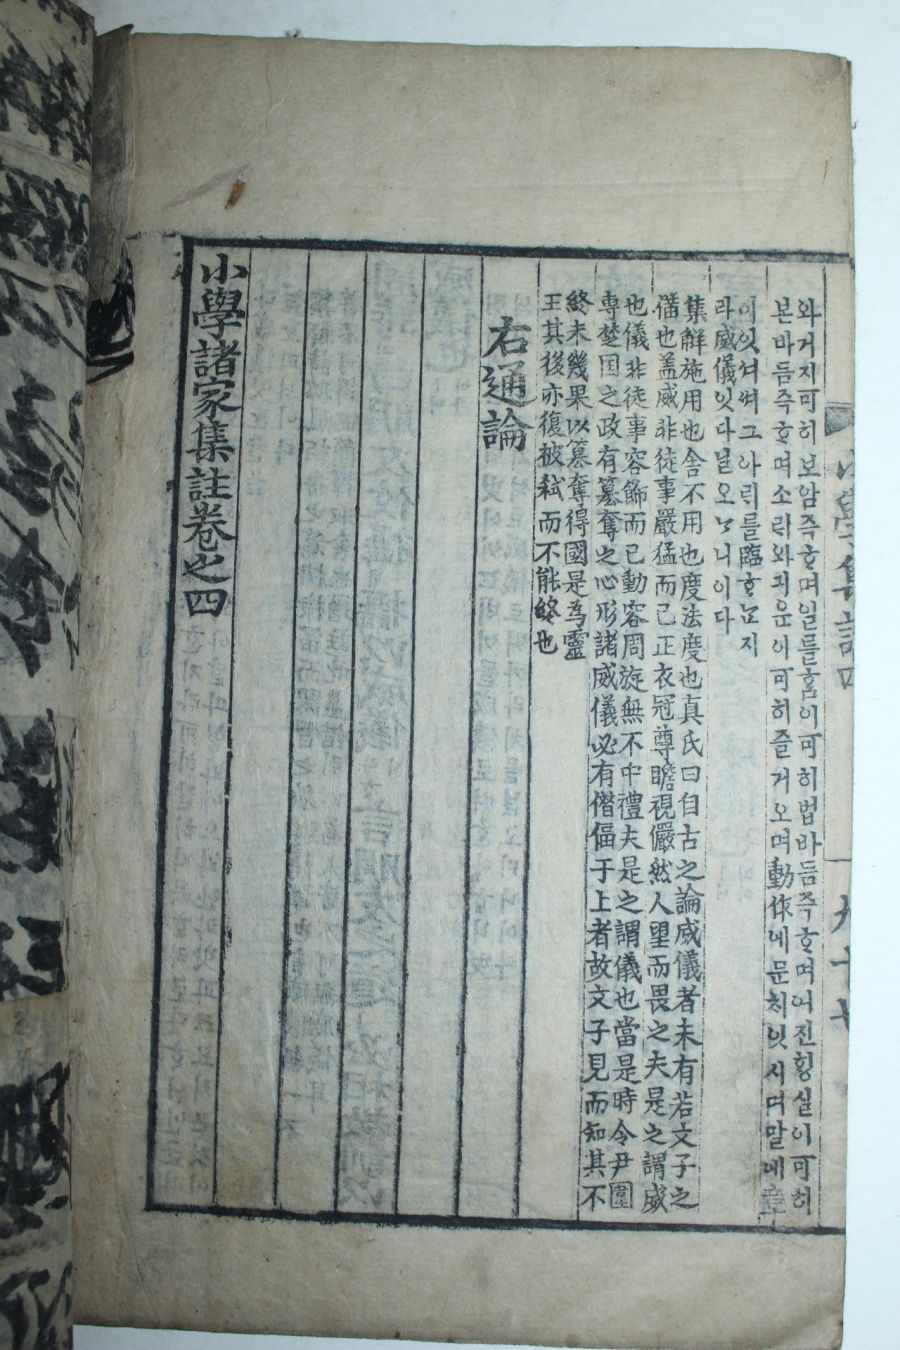 小學集註四 九十七
와거지可히보암즉ᄒᆞ며일를홈이可히법바듬즉ᄒᆞ며어진횡실이可히
본바듬즉ᄒᆞ며소ᄅᆡ와긔운이可히즐거오며動作애문치잇시며말애章
이잇셔ᄡᅥ그아ᄅᆡ를臨ᄒᆞᄂᆞᆫ지
라威儀잇다닐오ᄂᆞ니이다
集解施用也舍不用也度法度也真氏曰自古之論威儀者未有若文子之
僃也盖威非徒事嚴猛而已正衣冠尊瞻視儼然人望而畏之夫是之謂威
也儀非徒事容飾而已動容周旋無不中禮夫是之謂儀也當是時令尹圍
專楚国之政有簒奪之心形諸威儀必有僭偪于上者故文子見而知其不
終未幾果以簒奪得國是為靈
王其後亦復被弑而不能終也
右通論
小學諸家集註卷之四